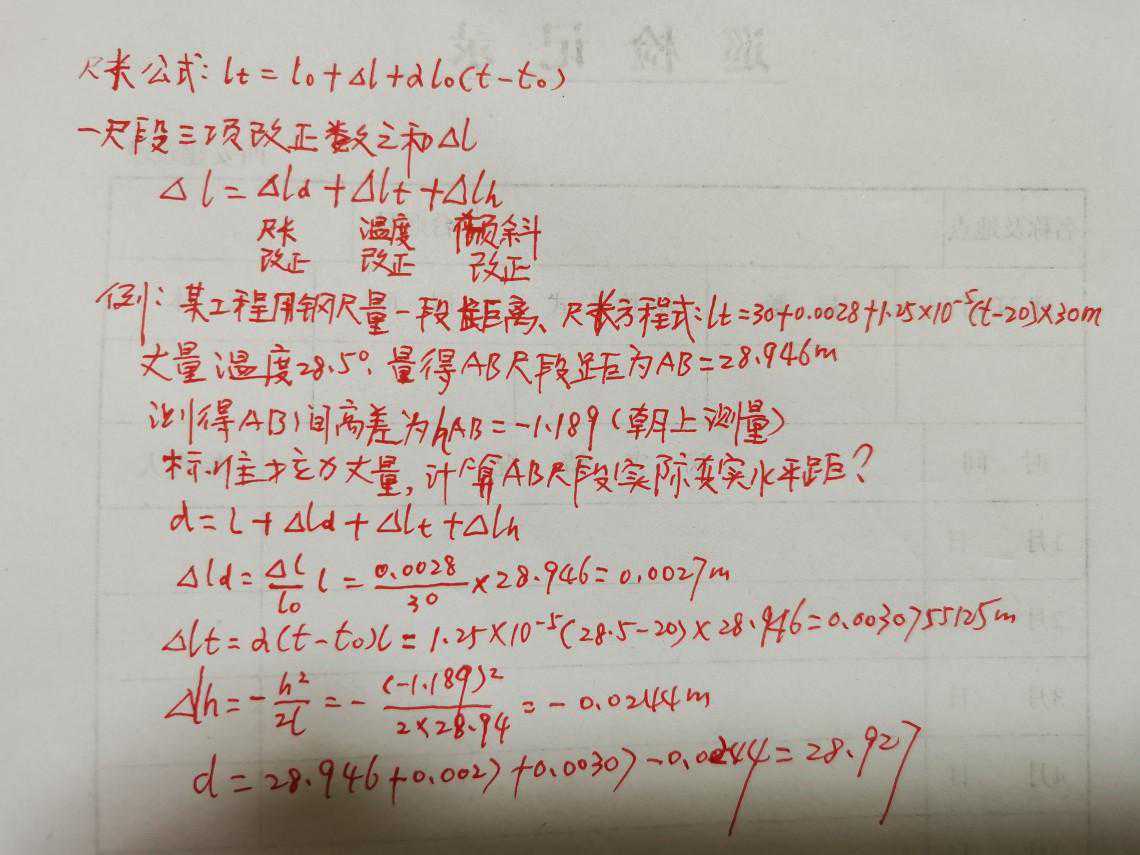 巡检记录
尺长公式: lt = l0 + Δl + αl0(t-t0)
一尺段三项改正数之和Δl
Δl = Δld + Δlt + Δlh
尺长 温度 倾斜
改正 改正 改正
例: 某工程用钢尺量一段距离、尺长方程式: lt=30+0.0028+1.25×10⁻⁵(t-20)×30m
名称及地点
丈量温度28.5°. 量得AB尺段距为AB=28.946m
测得AB间高差为hAB=-1.189(朝上测量)
标准拉力丈量, 计算AB尺段实际真实水平距?
时间
d = l + Δld + Δlt + Δlh
Δld = Δl/l0 l = 0.0028/30 × 28.946 = 0.0027m
1月 日
Δlt = α(t-t0)l = 1.25×10⁻⁵(28.5-20)×28.946=0.0030755125m
2月
Δlh = -h²/2l = -(-1.189)²/2×28.94 = -0.0244m
3月 日
d = 28.946+0.0027+0.0030)-0.0244=28.927
4月 日